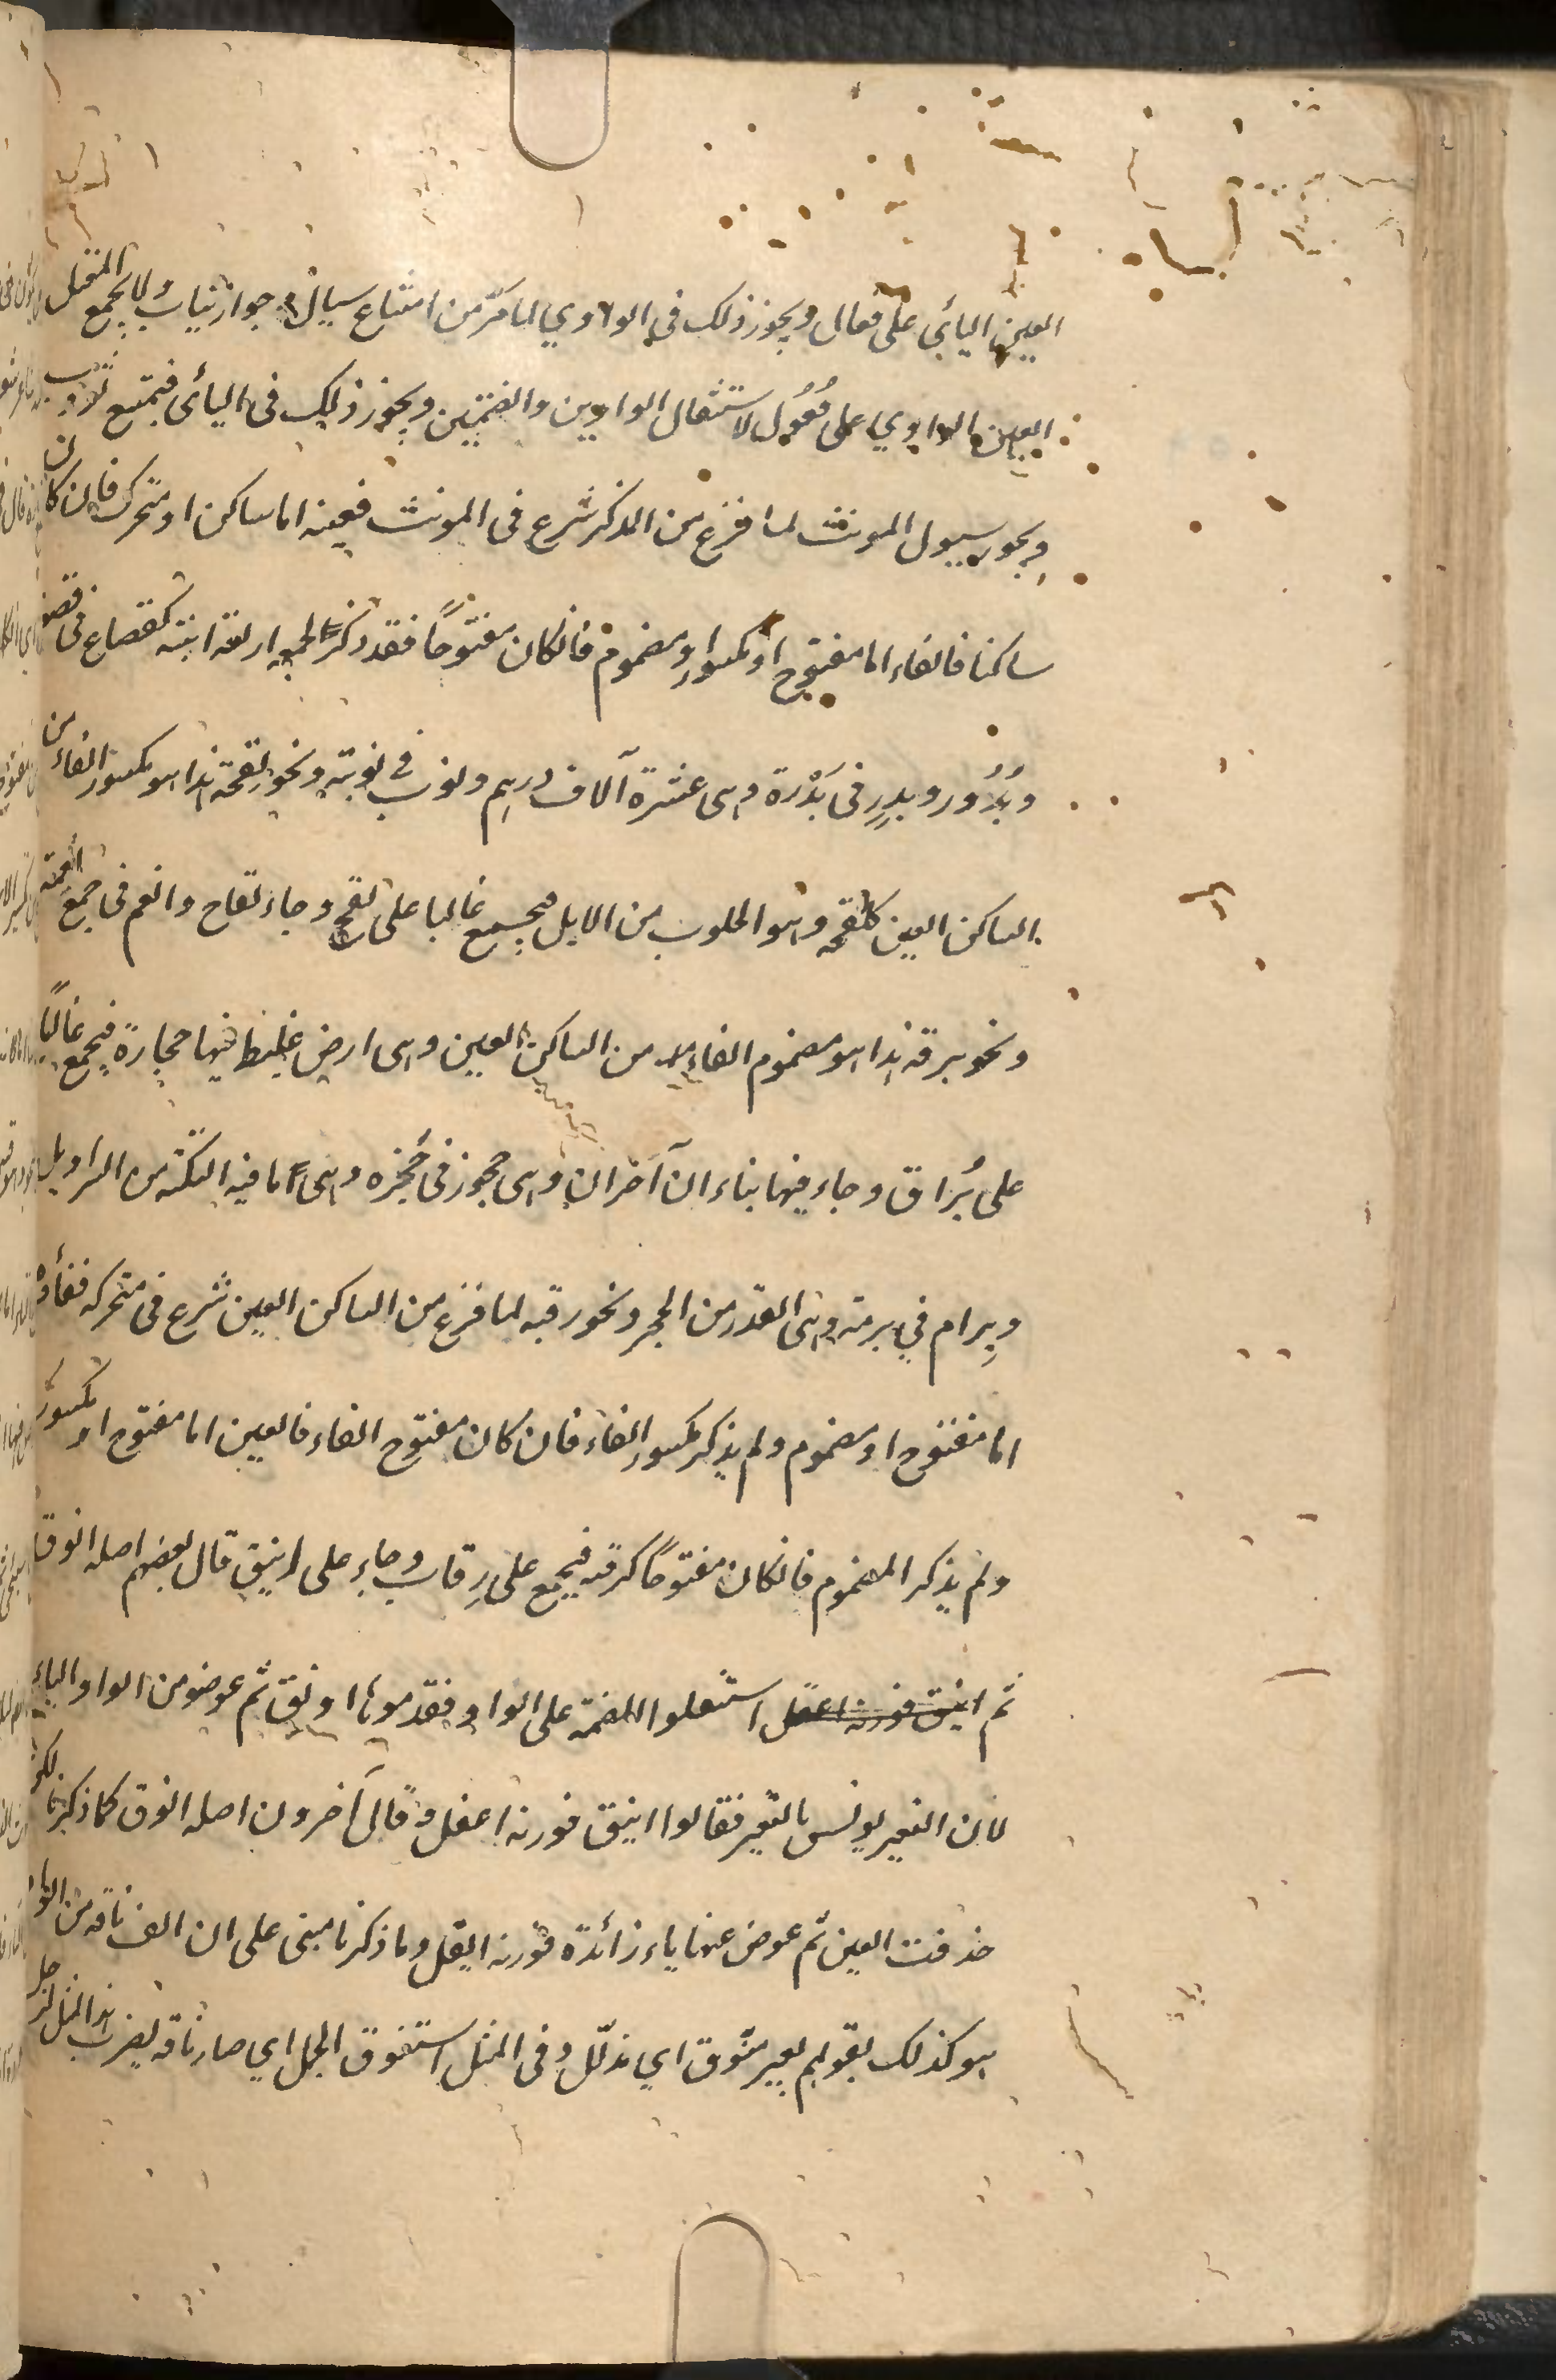 العين اليائى على فعال ويجوز ذلك فى الواوي لما مرّ من امتناع سيال وجواز ثياب ولا يجمع المعتل
العين الواوي على فُعُول لاستثقال الواوين والضمتين ويجوز ذلك فى اليائى فيمتنع ثووب
ويجوز سيول المونث لما فرغ من المذكر شرع فى المونث فعينه اما ساكن او متحرك فان كان
ساكنا فالفاء اما مفتوح او مكسور او مضموم فانكان مفتوحًا فقد ذكر لجمعه اربعة ابنية كقصاع فى قصعة
وبُدُور وبدر فى بَدْرة وهى عشرة آلاف درهم ونوب في نوبة ونحو لقحة هذا هو مكسور الفاء من
الساكن العين كلقحه وهو الحلوب من الابل فيجمع غالبا على لقح وجاء لقاح وانعم فى جمع نعمة
ونحو برقة هذا هو مضموم الفاء من الساكن العين وهى ارض غليظ فيها حجارة فيجمع غالبًا
على بُراق وجاء فيها بناء ان آخران وهى حجوز فى حُجزه وهى ما فيه التكة من السراويل
وبِرام في برمة وهى القدر من الحجر ونحو رقبه لما فرغ من الساكن العين شرع فى متحركه ففاؤه
اما مفتوح او مضموم ولم يذكر مكسور الفاء فان كان مفتوح الفاء فالعين اما مفتوح او مكسور
ولم يذكر المضموم فانكان مفتوحًا كرقبه فيجمع على رِقاب وجاء على اينق قال بعضهم اصله انوق
ثم استثقلوا الضمة على الواو فقدموها اونق ثم عوضو من الواو الياء
لان التغير يونس بالتغير فقالوا اينق فوزنه اعفل وقال آخرون اصله انوق كما ذكرنا لكن
حذفت العين ثم عوض عنها ياء زائدة فوزنه ايفل وما ذكرنا مبنى على ان الف ناقة من الواو
هو كذلك لقولهم بعير منوّق اي مذلّل وفى المثل استنوق الجمل اي صار ناقه يضرب هذا المثل لرجل